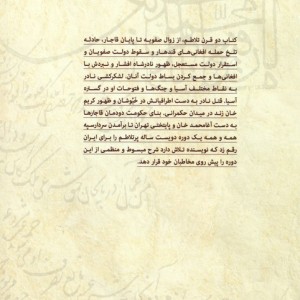 کتاب دو قرن تلاطم، از زوال صفویه تا پایان قاجار، حادثه
تلخ حمله افغانی‌های قندهار و سقوط دولت صفویان و
استقرار دولت مستعجل، ظهور نادرشاه افشار و نبردش با
افغانی‌ها و جمع کردن بساط دولت آنان. لشکرکشی نادر
به نقاط مختلف آسیا و جنگ‌ها و فتوحات او در گستره
آسیا. قتل نادر به دست اطرافیانش در خبوشان و ظهور کریم
خان زند در میدان حکمرانی. بنای حکومت دودمان قاجارها
به دست آغامحمد خان و پایتختی تهران تا برآمدن سردارسپه
همه و همه یک دوره دویست ساله پرتلاطم را برای ایران
رقم زد که نویسنده تلاش دارد شرح مبسوط و منظمی از این
دوره را پیش روی مخاطبان خود قرار دهد.